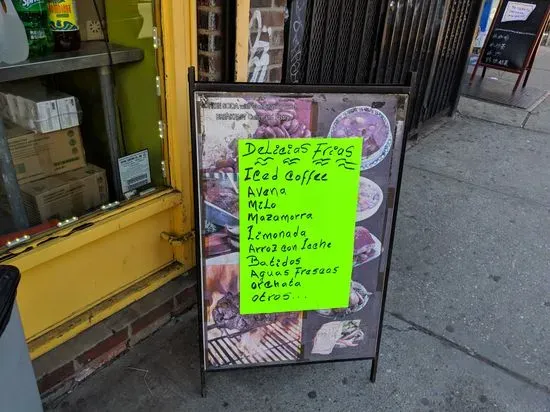 Delicias Frias
Iced Coffee
Avena
Milo
Mazamorra
Limonada
Arroz con Leche
Batidos
Aguas Frescas
Orchata
otros...